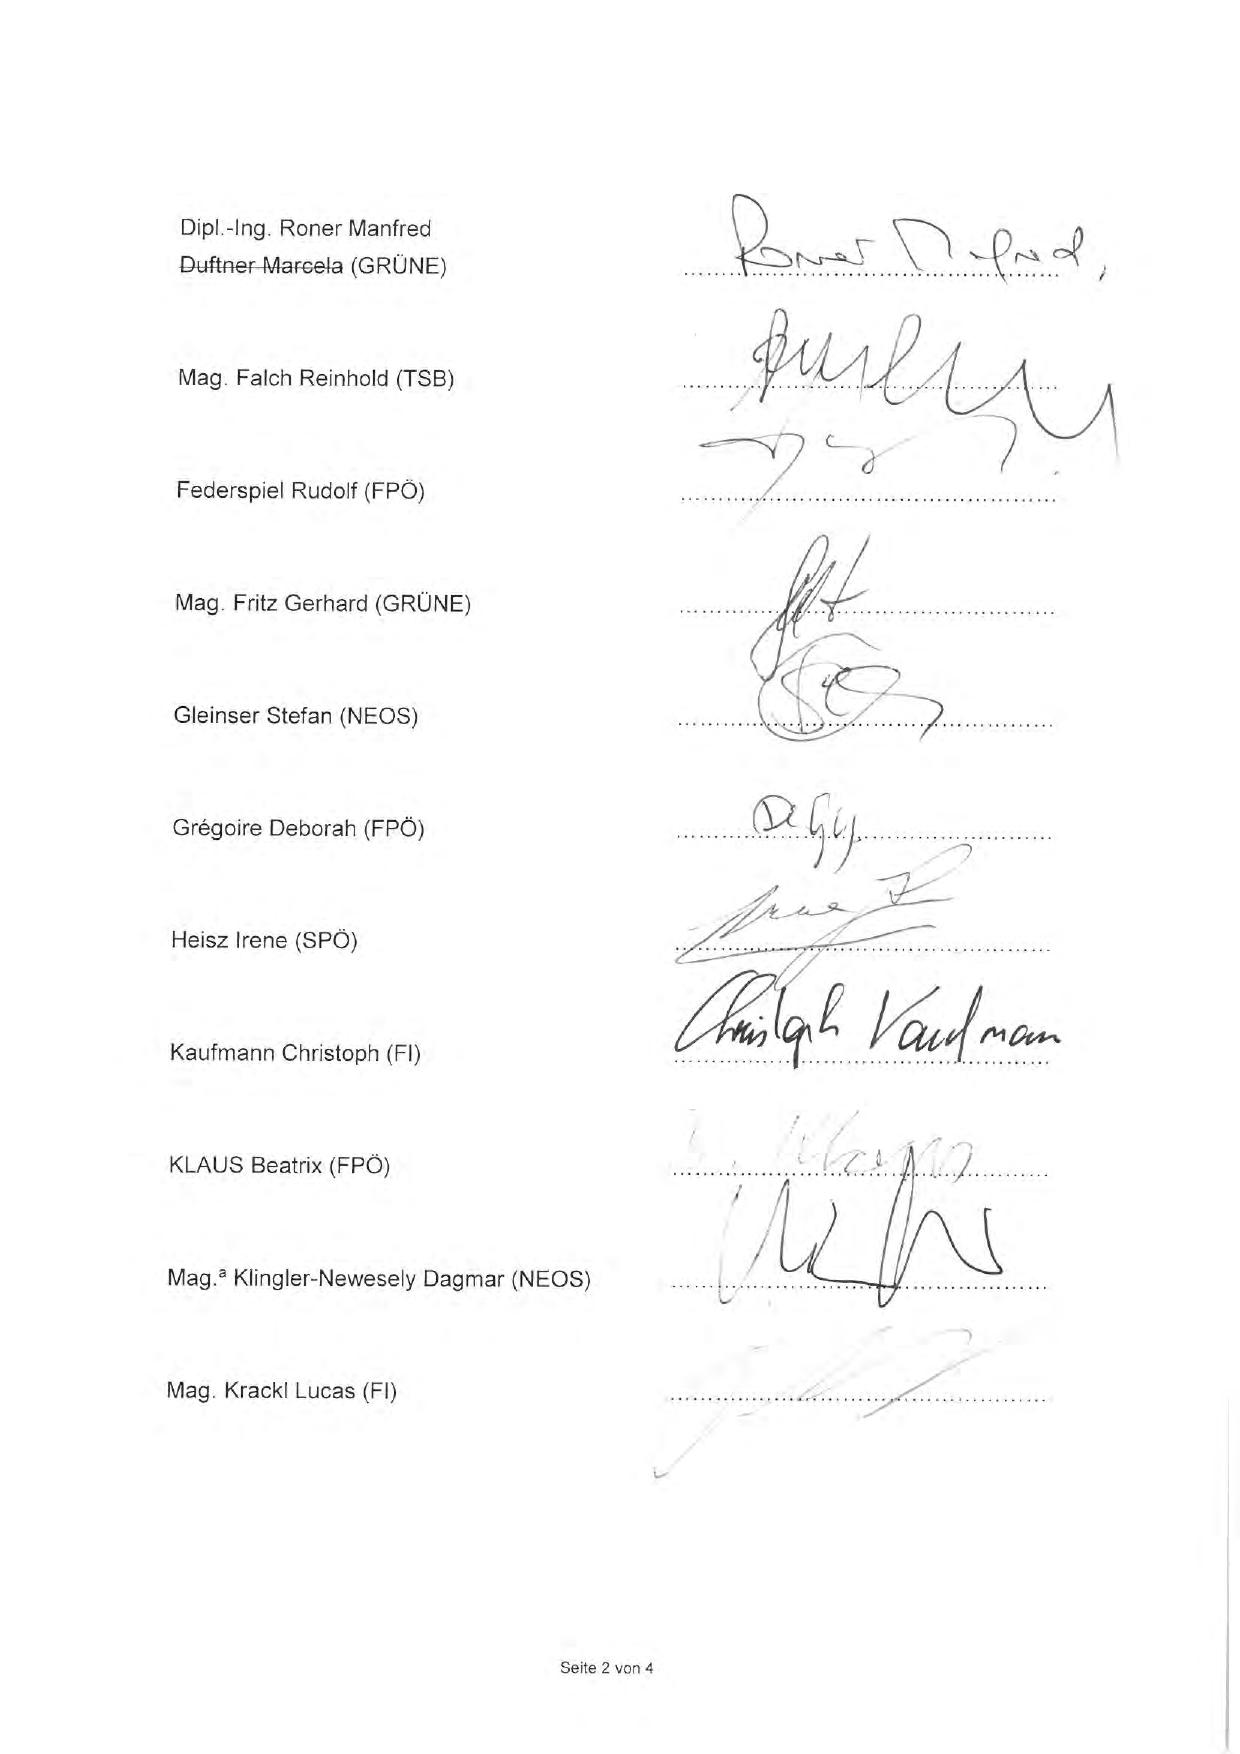 Dipl.-Ing. Roner Manfred
Duftner Marcela (GRÜNE)
Roner Manfred
Mag. Falch Reinhold (TSB)
Federspiel Rudolf (FPÖ)
Mag. Fritz Gerhard (GRÜNE)
Gleinser Stefan (NEOS)
Grégoire Deborah (FPÖ)
Heisz Irene (SPÖ)
Kaufmann Christoph (FI)
Christoph Kaufmann
KLAUS Beatrix (FPÖ)
Mag.ª Klingler-Newesely Dagmar (NEOS)
Mag. Krackl Lucas (FI)
Seite 2 von 4